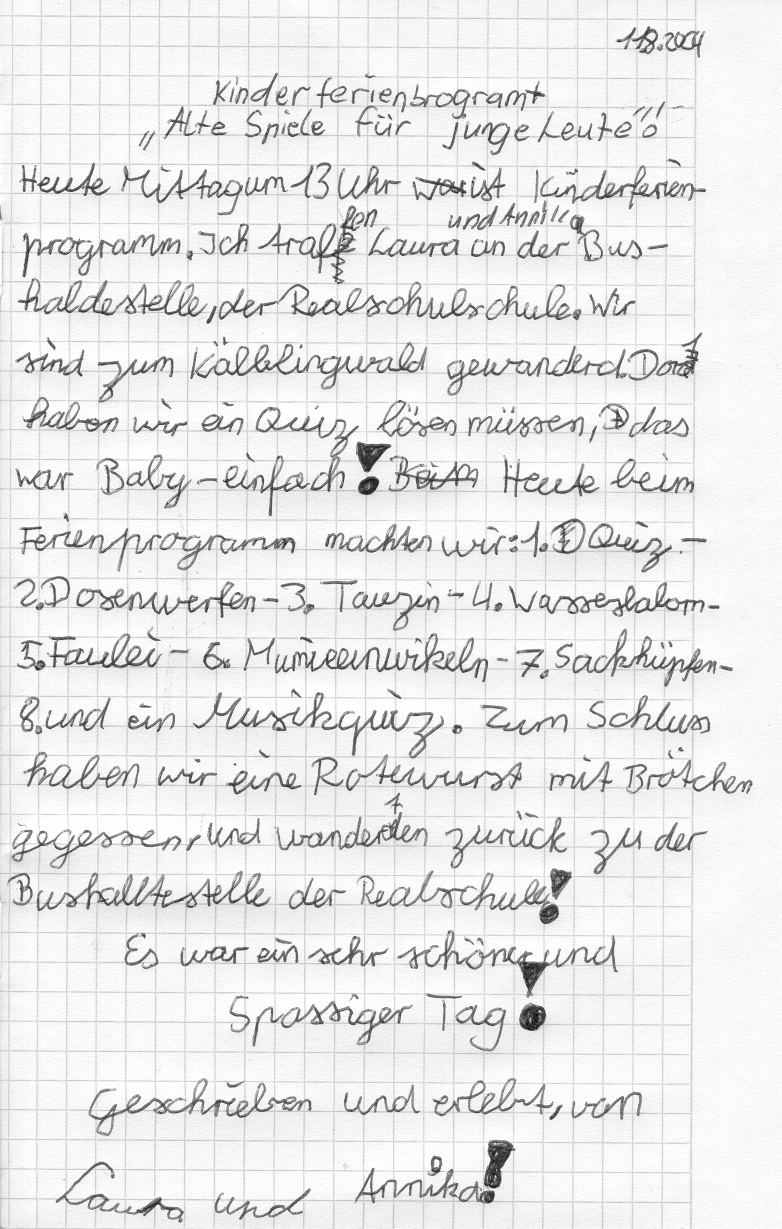 11.8.2004
Kinderferienbrogramt
„Alte Spiele für junge Leute"
Heute Mittag um 13 Uhr ist Kinderferien-
programm. Ich traffen Laura und Annika an der Bus-
haldestelle, der Realschulschule. Wir
sind zum Kälblingwald gewanderd. Dort
haben wir ein Quiz lösen müssen, das
war Baby-einfach! Heute beim
Ferienprogramm machten wir: 1. Quiz -
2. Dosenwerfen - 3. Tauzin - 4. Wasseslalom -
5. Faulei - 6. Mumieenwikeln - 7. Sackhüpfen -
8. und ein Musikquiz. Zum Schluss
haben wir eine Rotewurst mit Brötchen
gegessen, und wanderten zurück zu der
Bushalltestelle der Realschule!
Es war ein sehr schöner und
Spassiger Tag!
Geschrieben und erlebt, von
Laura und Annika!